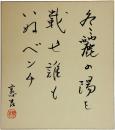 冬麗の陽を
載せ誰も
いぬベンチ